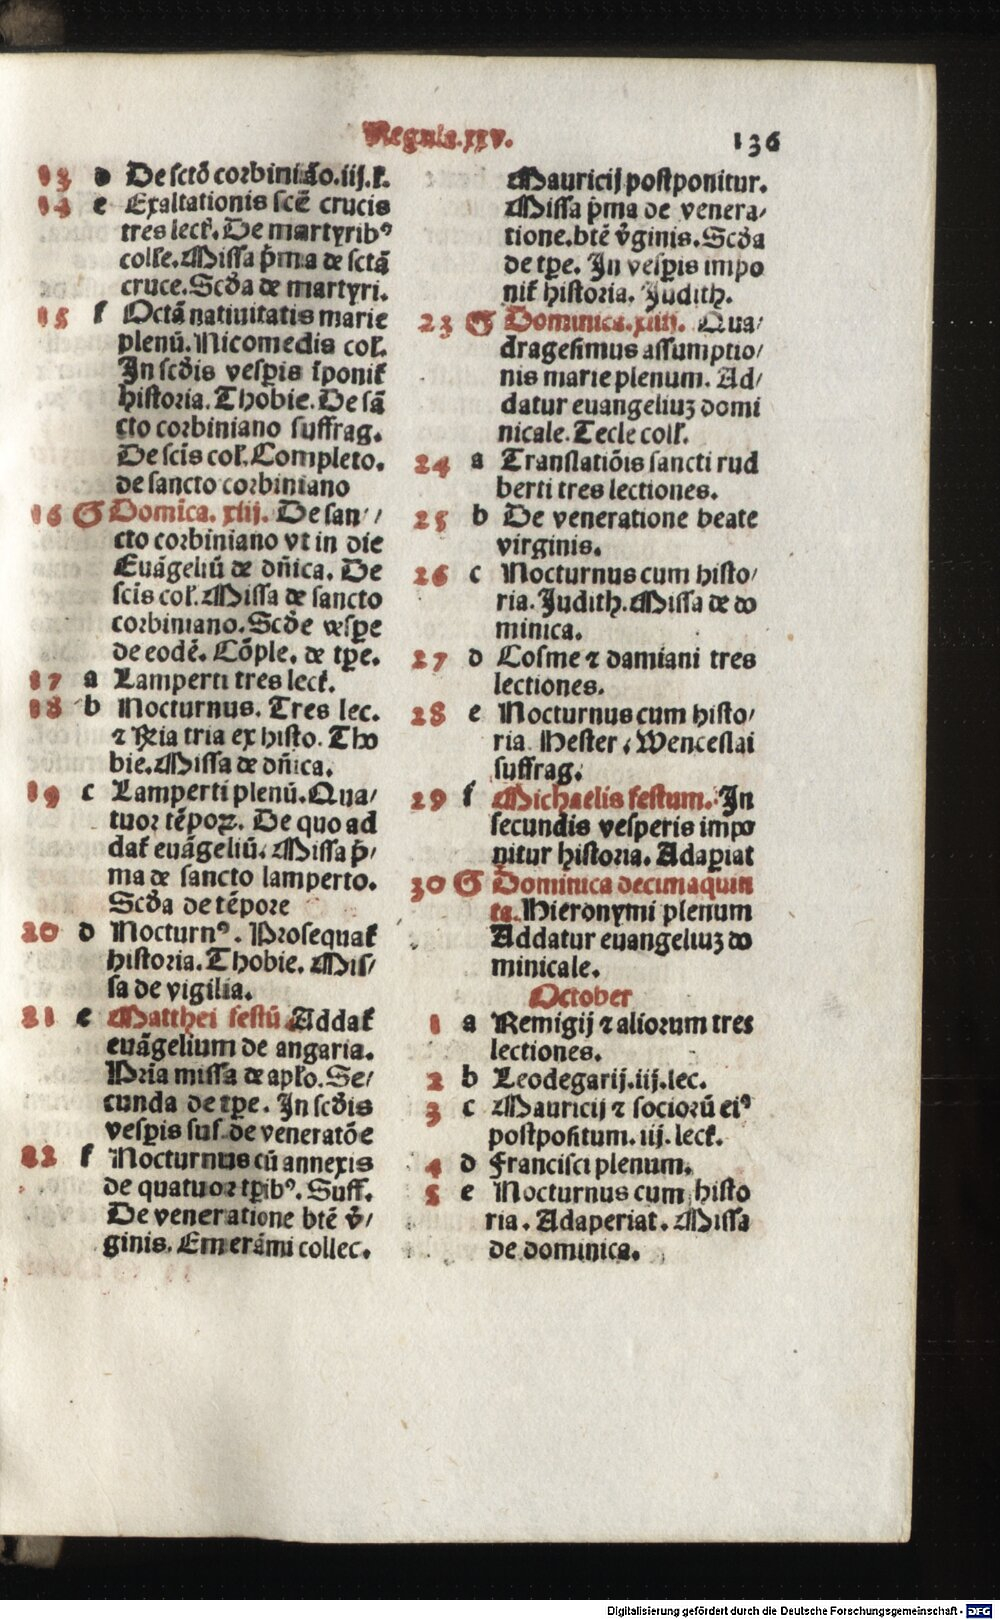 Regula.xxv.
136
13 d De sctō corbiniāo.iij.lꝭ.
14 e Exaltationis scē crucis
tres lecꝭ. De martyribꝰ
colle. Missa p̄ma de sctā
cruce. Scd̄a de martyri.
15 f Octā natiuitatis marie
plenū. Nicomedis col̄.
In scd̄is vesp̄is īponiꝭ
historia. Thobie. De sā
cto corbiniano suffrag.
De scīs col̄. Completo.
de sancto corbiniano
16 G Domīca. xiij. De san⸗
cto corbiniano vt in die
Euāgeliū de dn̄ica. De
scīs col̄. Missa de sancto
corbiniano. Scd̄e vesꝑe
de eodē. Cōple. de tꝑe.
17 a Lamperti tres lecꝭ.
18 b Nocturnus. Tres lec.
⁊ Rn̄ia tria ex histo. Tho
bie. Missa de dn̄ica.
19 c Lamperti plenū. Qua⸗
tuor tēpoꝝ. De quo ad
daꝭ euāgeliū. Missa p̄⸗
ma de sancto lamperto.
Scd̄a de tēpore
20 d Nocturnꝰ. Prosequaꝭ
historia. Thobie. Mis⸗
sa de vigilia.
21 e Matthei festū Addaꝭ
euāgelium de angaria.
Pria missa de apl̄o. Se⸗
cunda de tꝑe. In scd̄is
vesꝑis suf. de veneratōe
22 f Nocturnus cū annexis
de quatuor tꝑibꝰ. Suff.
De veneratione btē v̄⸗
ginis. Emerāmi collec.
Mauricij postponitur.
Missa p̄ma de venera⸗
tione.btē v̄ginis. Scd̄a
de tꝑe. In vesꝑis impo
niꝭ historia. Judith.
23 G Dominica.xiiij. Qua⸗
dragesimus assumptio⸗
nis marie plenum. Ad⸗
datur euangeliuꝫ domi
nicale. Tecle coll̄.
24 a Translatiōis sancti rud
berti tres lectiones.
25 b De veneratione beate
virginis.
26 c Nocturnus cum histo⸗
ria. Judith. Missa de do
minica.
27 d Cosme ⁊ damiani tres
lectiones.
28 e Nocturnus cum histo⸗
ria. Hester. Wenceslai
suffrag.
29 f Michaelis festum. In
secundis vesperis impo
nitur historia. Adaꝑiat
30 G Dominica decimaquin
ta. Hieronymi plenum
Addatur euangeliuꝫ do
minicale.
October
1 a Remigij ⁊ aliorum tres
lectiones.
2 b Leodegarij.iij.lec.
3 c Mauricij ⁊ sociorū eiꝰ
postpositum. iij. lecꝭ.
4 d Francisci plenum.
5 e Nocturnus cum histo
ria. Adaperiat. Missa
de dominica.
Digitalisierung gefördert durch die Deutsche Forschungsgemeinschaft - DFG